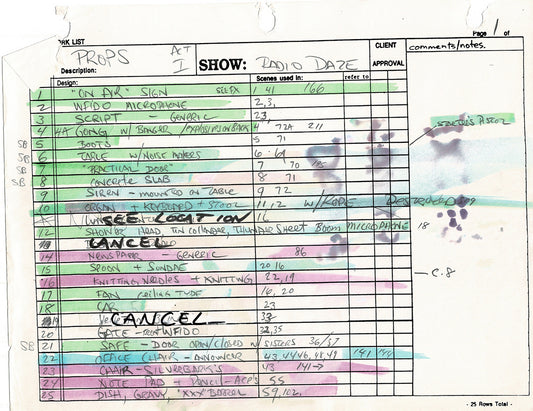 Page 1 of
RK LIST
PROPS
ACT I
SHOW: RADIO DAZE
CLIENT APPROVAL
comments/notes.
Description:
Design:
Scenes used in:
refer to
1 "ON AIR" SIGN SEL FX 1 41 166
2 WFIDO MICROPHONE 2,3,
3 SCRIPT - GENERIC 23,
4 4A GONG W/ BANGER / 4 72A 211
SB 5 BOOTS 5 71
SB 6 TABLE W/ NOISE MAKERS 6-69
SB 7 "PRACTICAL DOOR" 7 70
SB 8 CONCRETE SLAB 8
9 SIREN - MOUNTED ON TABLE 9 72
10 ORGAN + KEYBOARD + STOOL 11,12 W/ROPE Destroyed
SEE LOCATION 16
12 SHOWER HEAD, TIN COLLANDAR, THUNDER SHEET BOOM MICROPHONE 18
CANCEL
14 NEWSPAPER - GENERIC 86
15 SPOON + SUNDAE 20 16
C.8
16 KNITTING NEEDLES + KNITTING 22,19
17 FAN CEILING TYPE 16, 20
18 CAR 23
19 CANCEL 33
20 GATE - WFIDO 35
SB 21 SAFE - DOOR OPEN/CLOSED W/ SISTERS 36/37
22 OFFICE CHAIR - ANNOUNCER 43 44 46, 48, 49 141
23 CHAIR - SILVERBACK'S 43 141→
24 NOTE PAD + PENCIL - ACE'S 55
25 DISH, GRAVY, "XXX" BARREL 59, 102,
- 25 Rows Total -